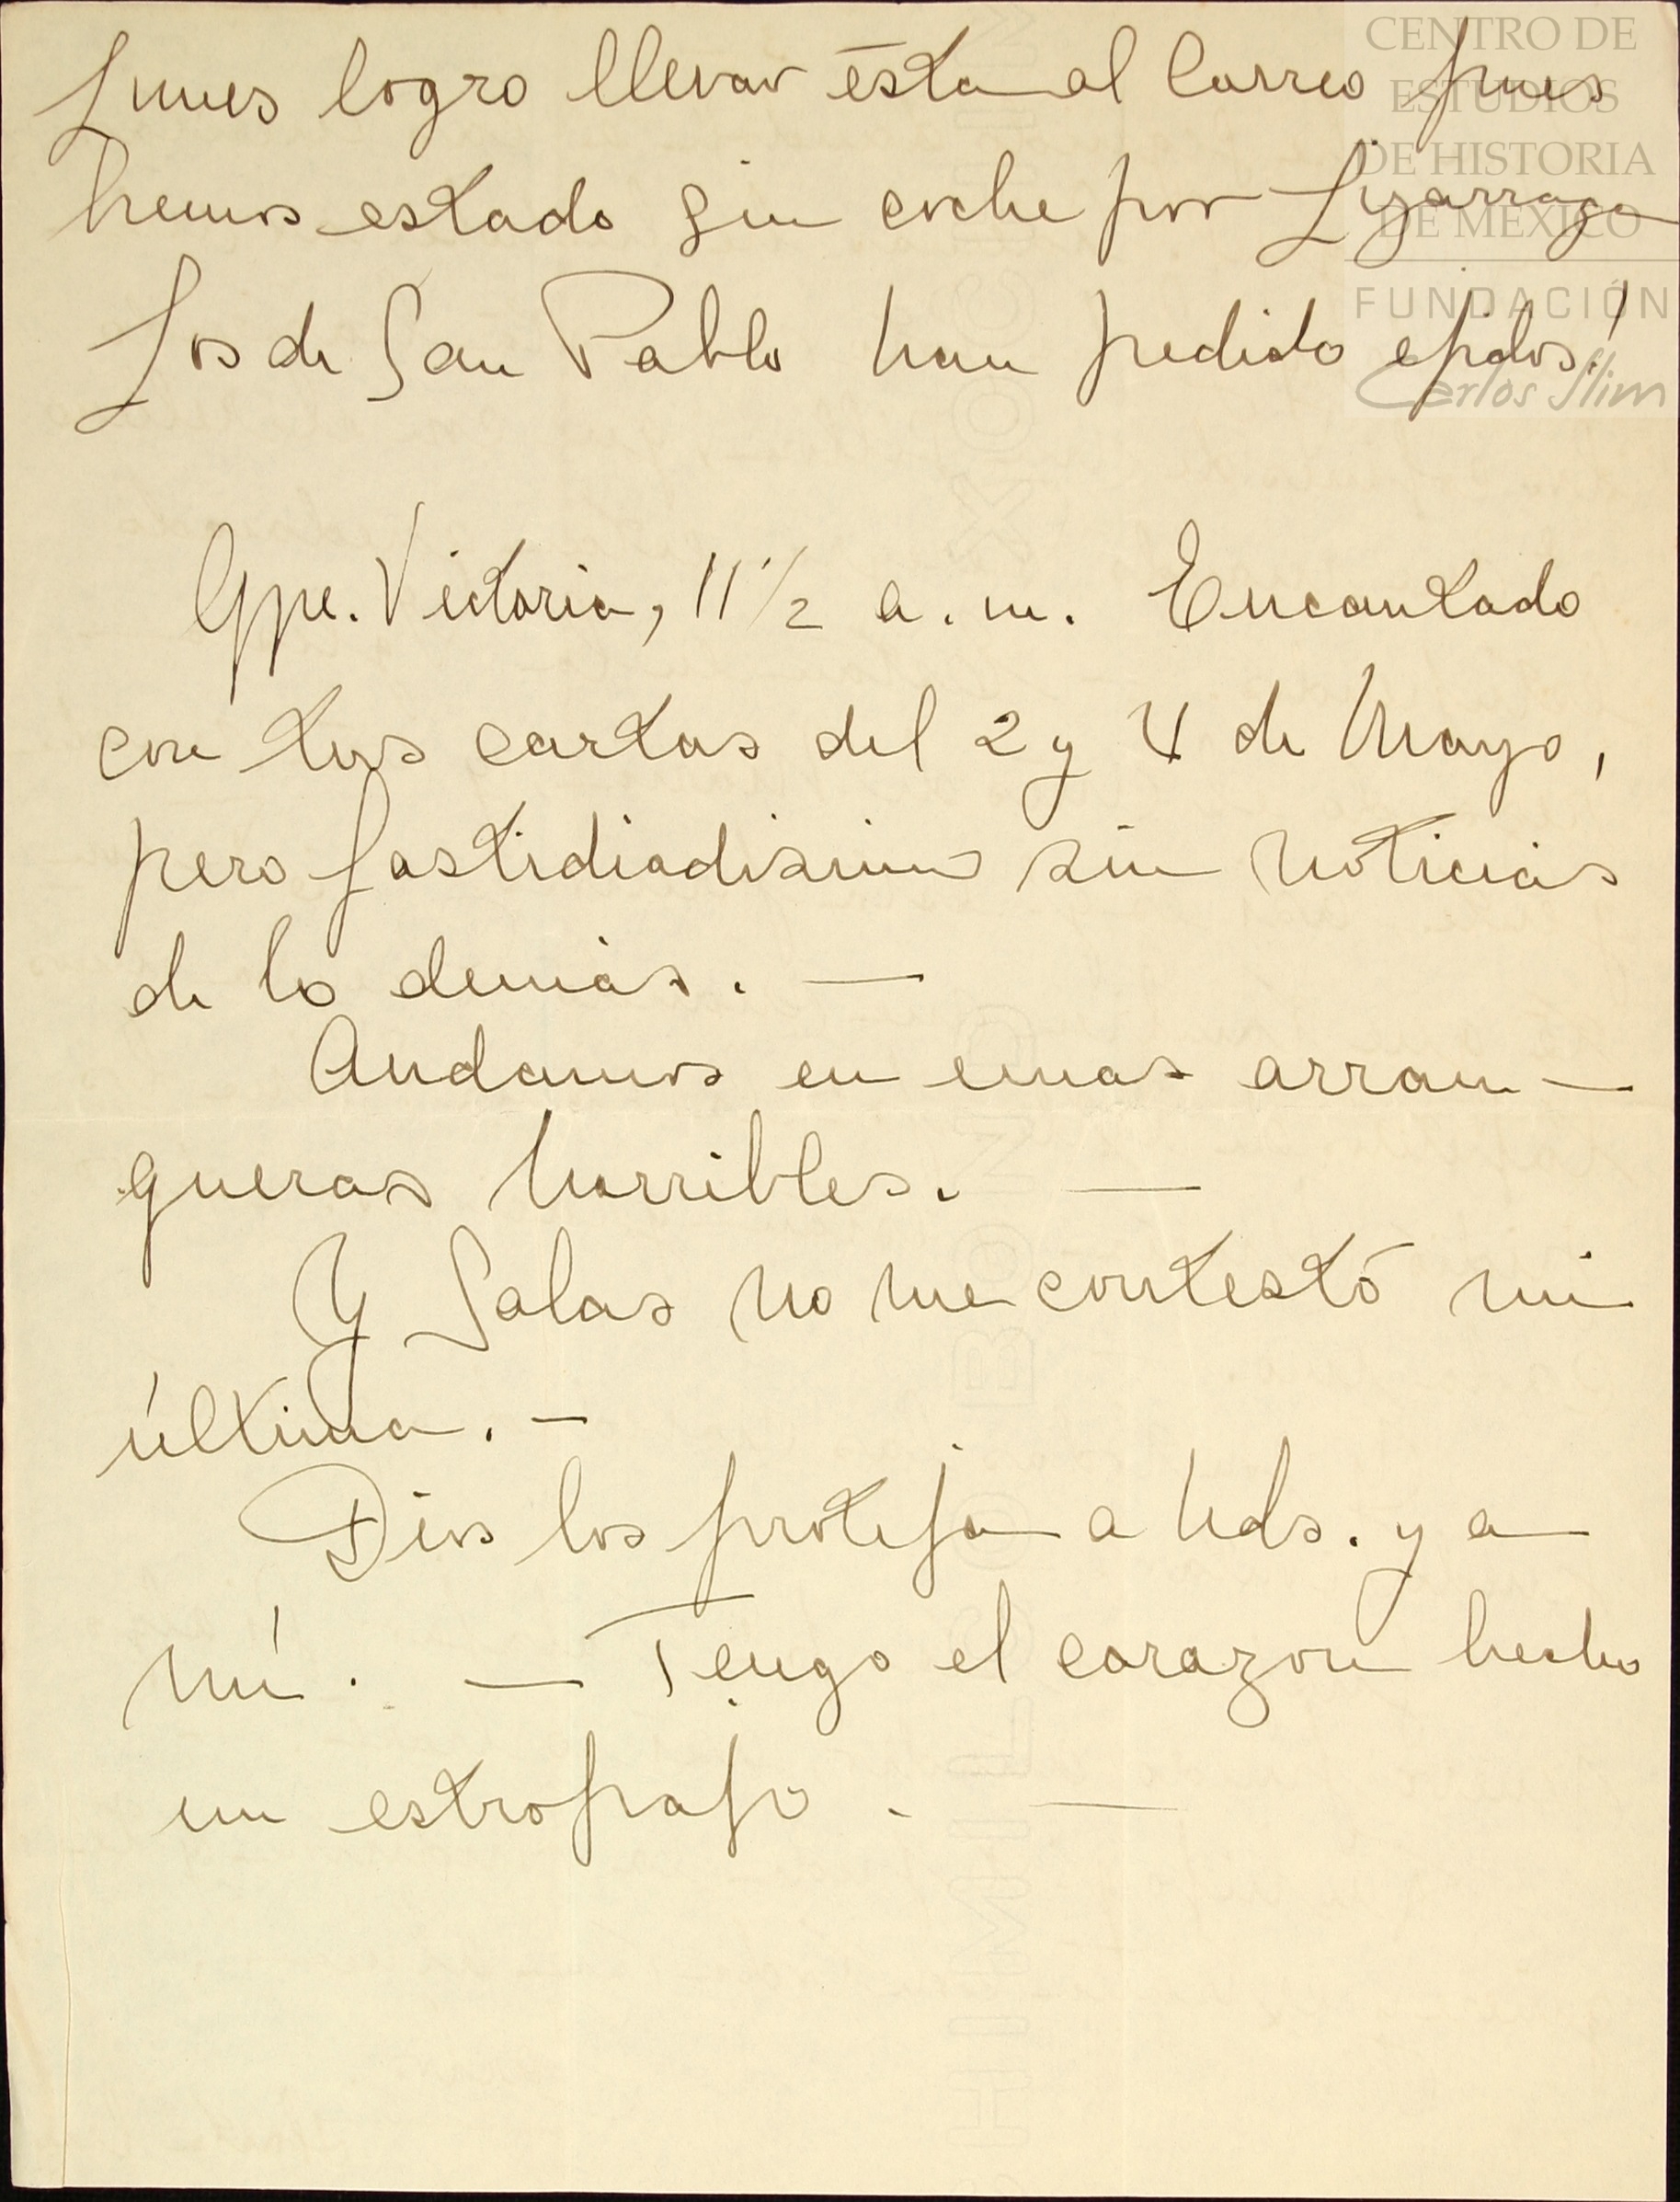 Lunes logro llevar ésta al Correo pues
hemos estado sin coche por Lizarraga
Los de San Pablo han pedido ejidos!
Gpe. Victoria, 11 1/2 a. m. Encantado
con tus cartas del 2 y 4 de Mayo,
pero fastidiadisimo sin noticias
de lo demás. —
Andamos en unas arran —
queras horribles. —
Y Salas no me contestó mi
última. —
Dios los proteja a Uds. y a
mí. — Tengo el corazon hecho
un estropajo. —
CENTRO DE
ESTUDIOS
DE HISTORIA
DE MÉXICO
FUNDACIÓN
Carlos Slim